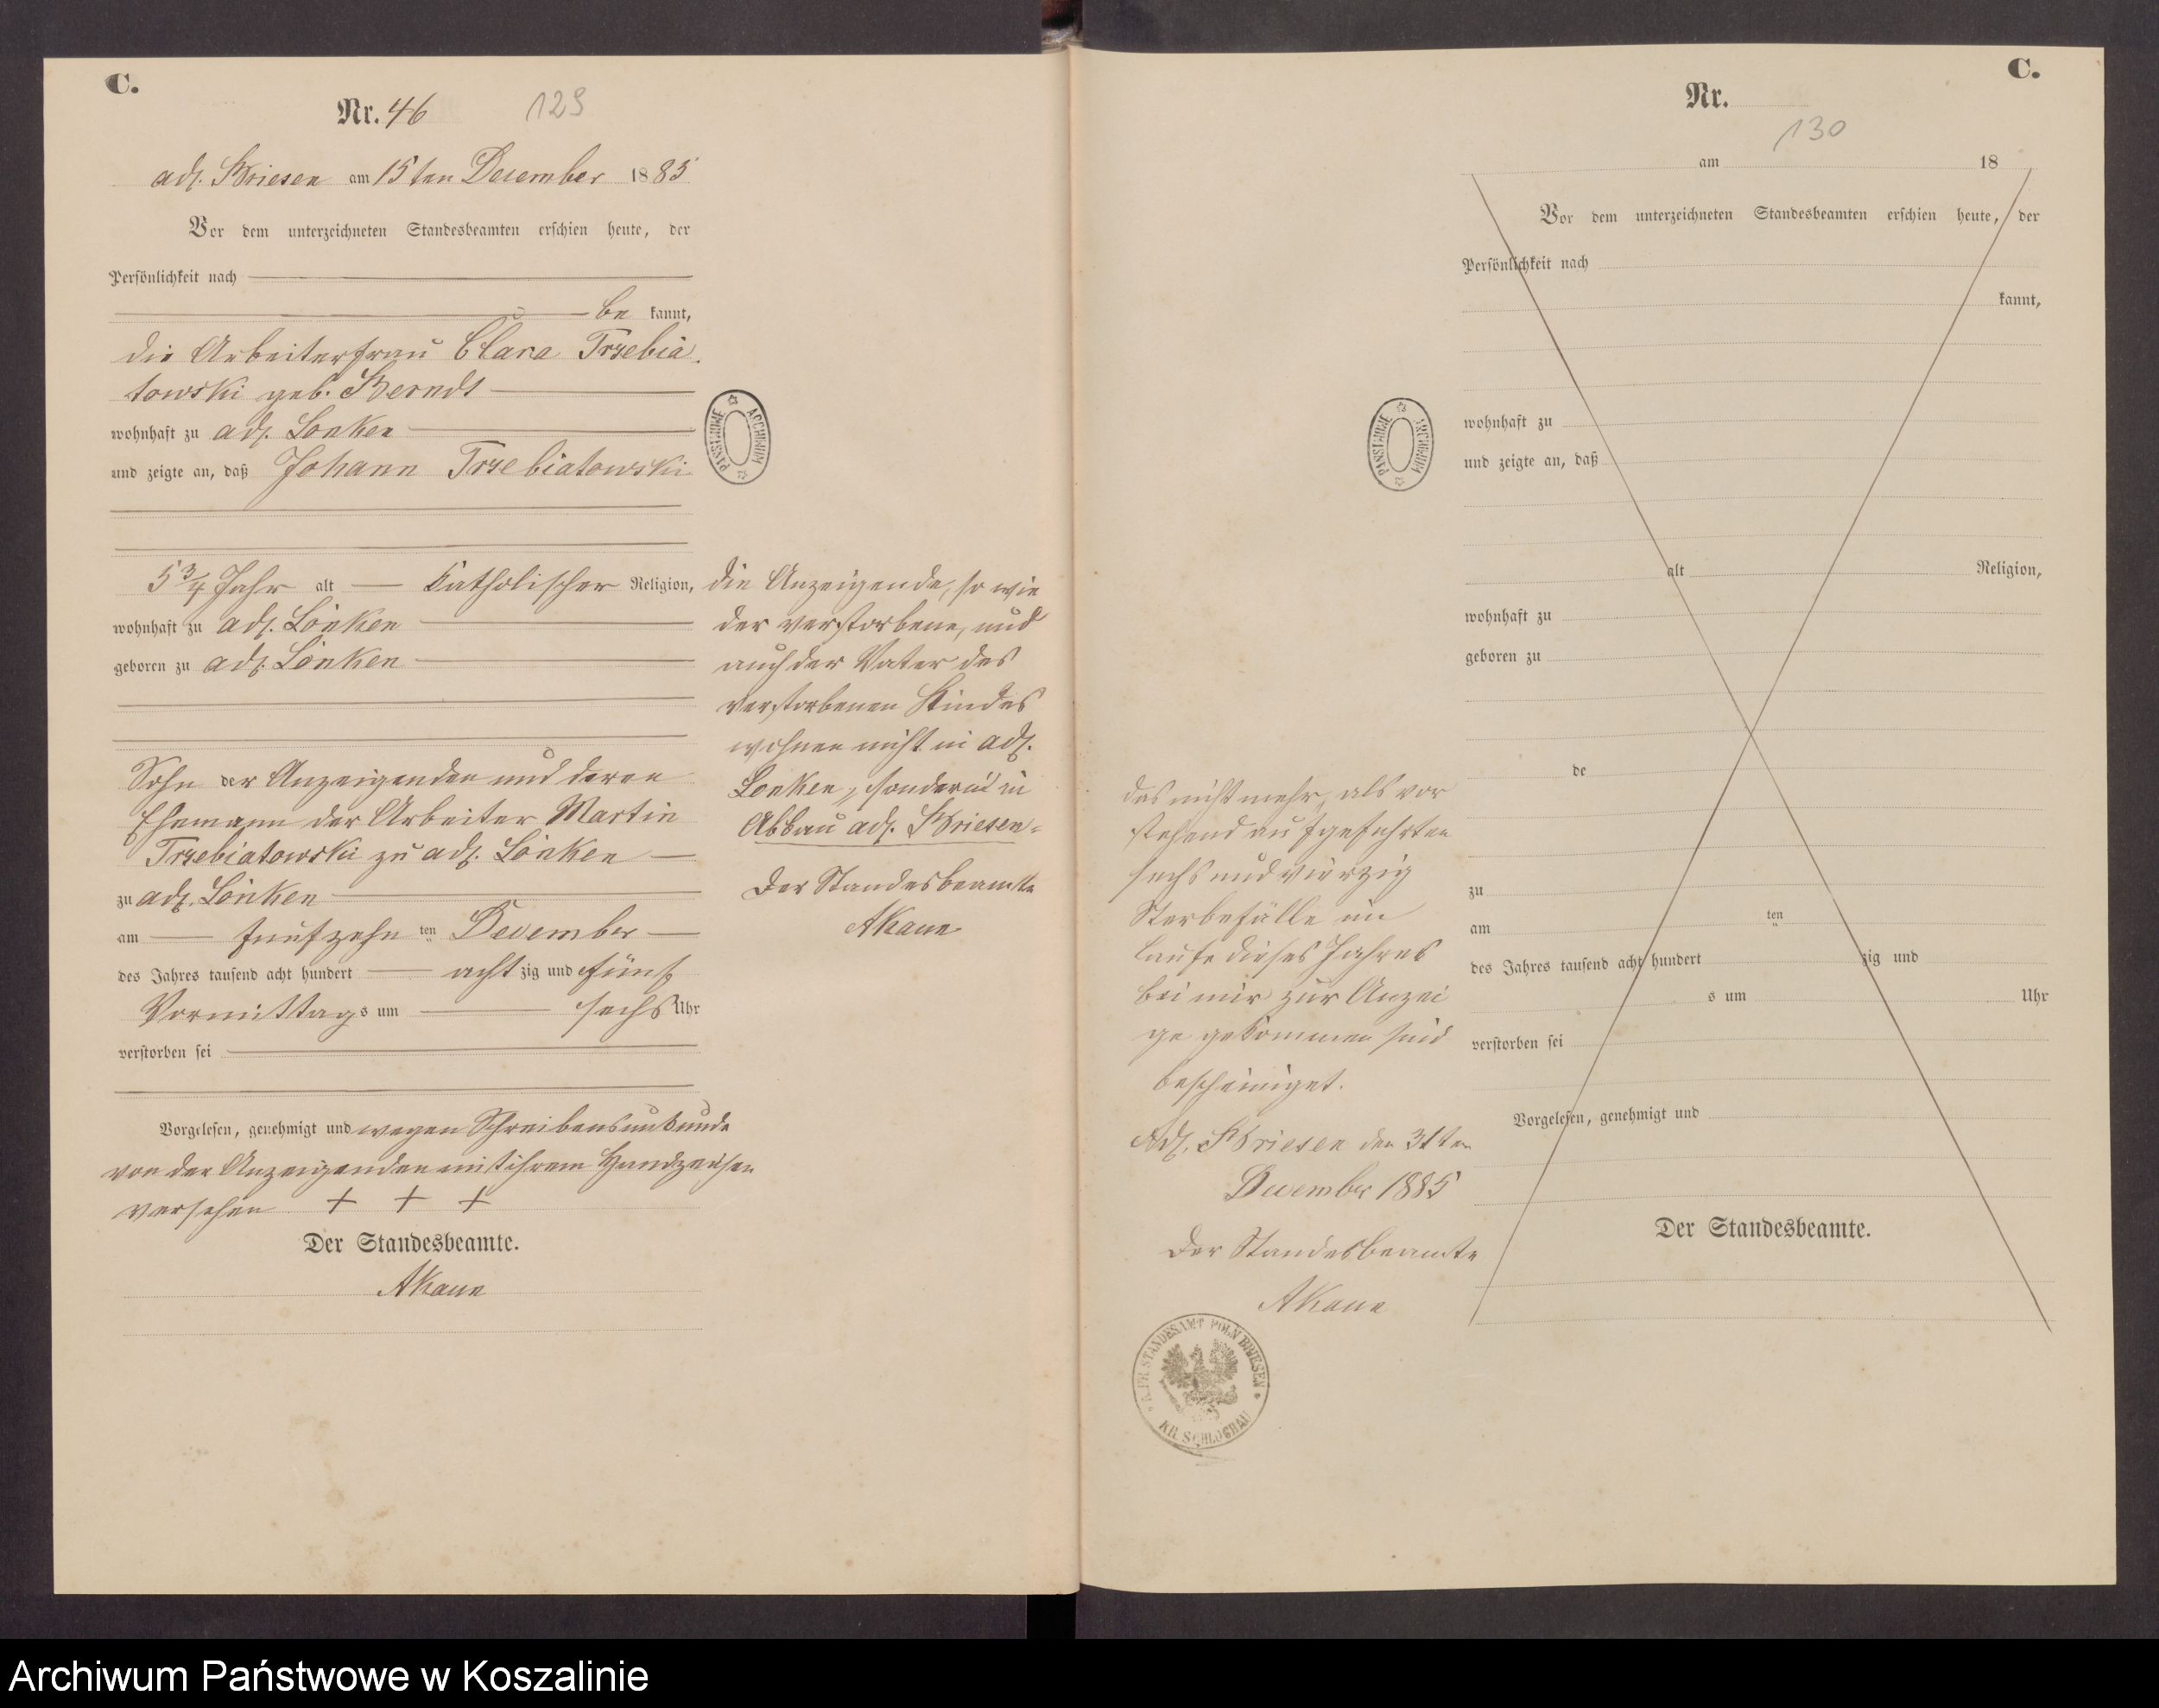 C.
Nr. 46
129
adl. Briesen am 15ten December 1885
Vor dem unterzeichneten Standesbeamten erschien heute, der
Persönlichkeit nach
be kannt,
die Arbeiterfrau Clara Trzebia
towski geb. Berndt
wohnhaft zu adl. Lonken
und zeigte an, daß Johann Trzebiatowski
5 3/4 Jahr alt katholischer Religion,
wohnhaft zu adl. Lonken
geboren zu adl. Lonken
Sohn der Anzeigenden und deren
Ehemann der Arbeiter Martin
Trzebiatowski zu adl. Lonken
zu adl. Lonken
am fünfzehn ten December
des Jahres tausend acht hundert acht zig und fünf
Vormittags um sechs Uhr
verstorben sei
Vorgelesen, genehmigt und wegen Schreibensunkunde
von der Anzeigenden mit ihrem Handzeichen
versehen + + +
Der Standesbeamte.
AKaun
die Anzeigende, so wie
der verstorbene, und
auch der Vater des
verstorbenen Kindes
wohnen nicht in adl.
Lonken, sondern in
Abbau adl. Briesen
Der Standesbeamte
AKaun
PAŃSTWOWE ARCHIWUM
C.
Nr.
130
am 18
Vor dem unterzeichneten Standesbeamten erschien heute, der
Persönlichkeit nach
kannt,
wohnhaft zu
und zeigte an, daß
alt Religion,
wohnhaft zu
geboren zu
de
zu
am ten
des Jahres tausend acht hundert zig und
s um Uhr
verstorben sei
Vorgelesen, genehmigt und
Der Standesbeamte.
PAŃSTWOWE ARCHIWUM
das nicht mehr, als vor
stehend aufgeführten
sechs und vierzig
Sterbefälle im
Laufe dieses Jahres
bei mir zur Anzei
ge gekommen sind
bescheiniget.
Adl. Briesen den 31ten
December 1885
Der Standesbeamte
AKaun
K. PR. STANDESAMT POLN BRIESEN
KR. SCHLOCHAU
Archiwum Państwowe w Koszalinie